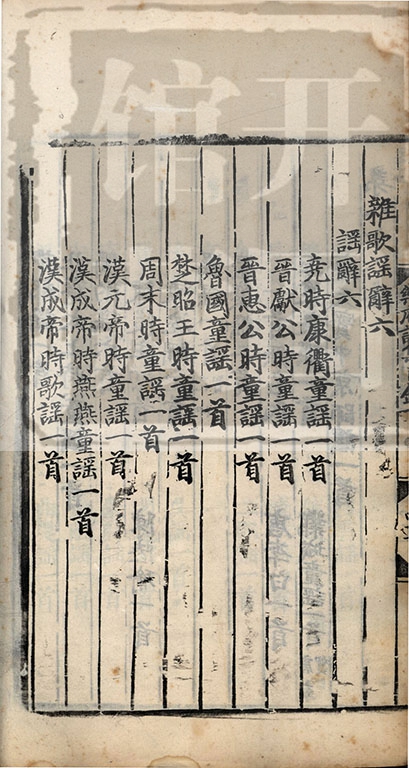 雜歌謡辭六
謡辭六
堯時康衢童謡一首
晉獻公時童謡一首
晉惠公時童謡一首
魯國童謡一首
楚昭王時童謡一首
周末時童謡一首
漢元帝時童謡一首
漢成帝時燕燕童謡一首
漢成帝時歌謡一首